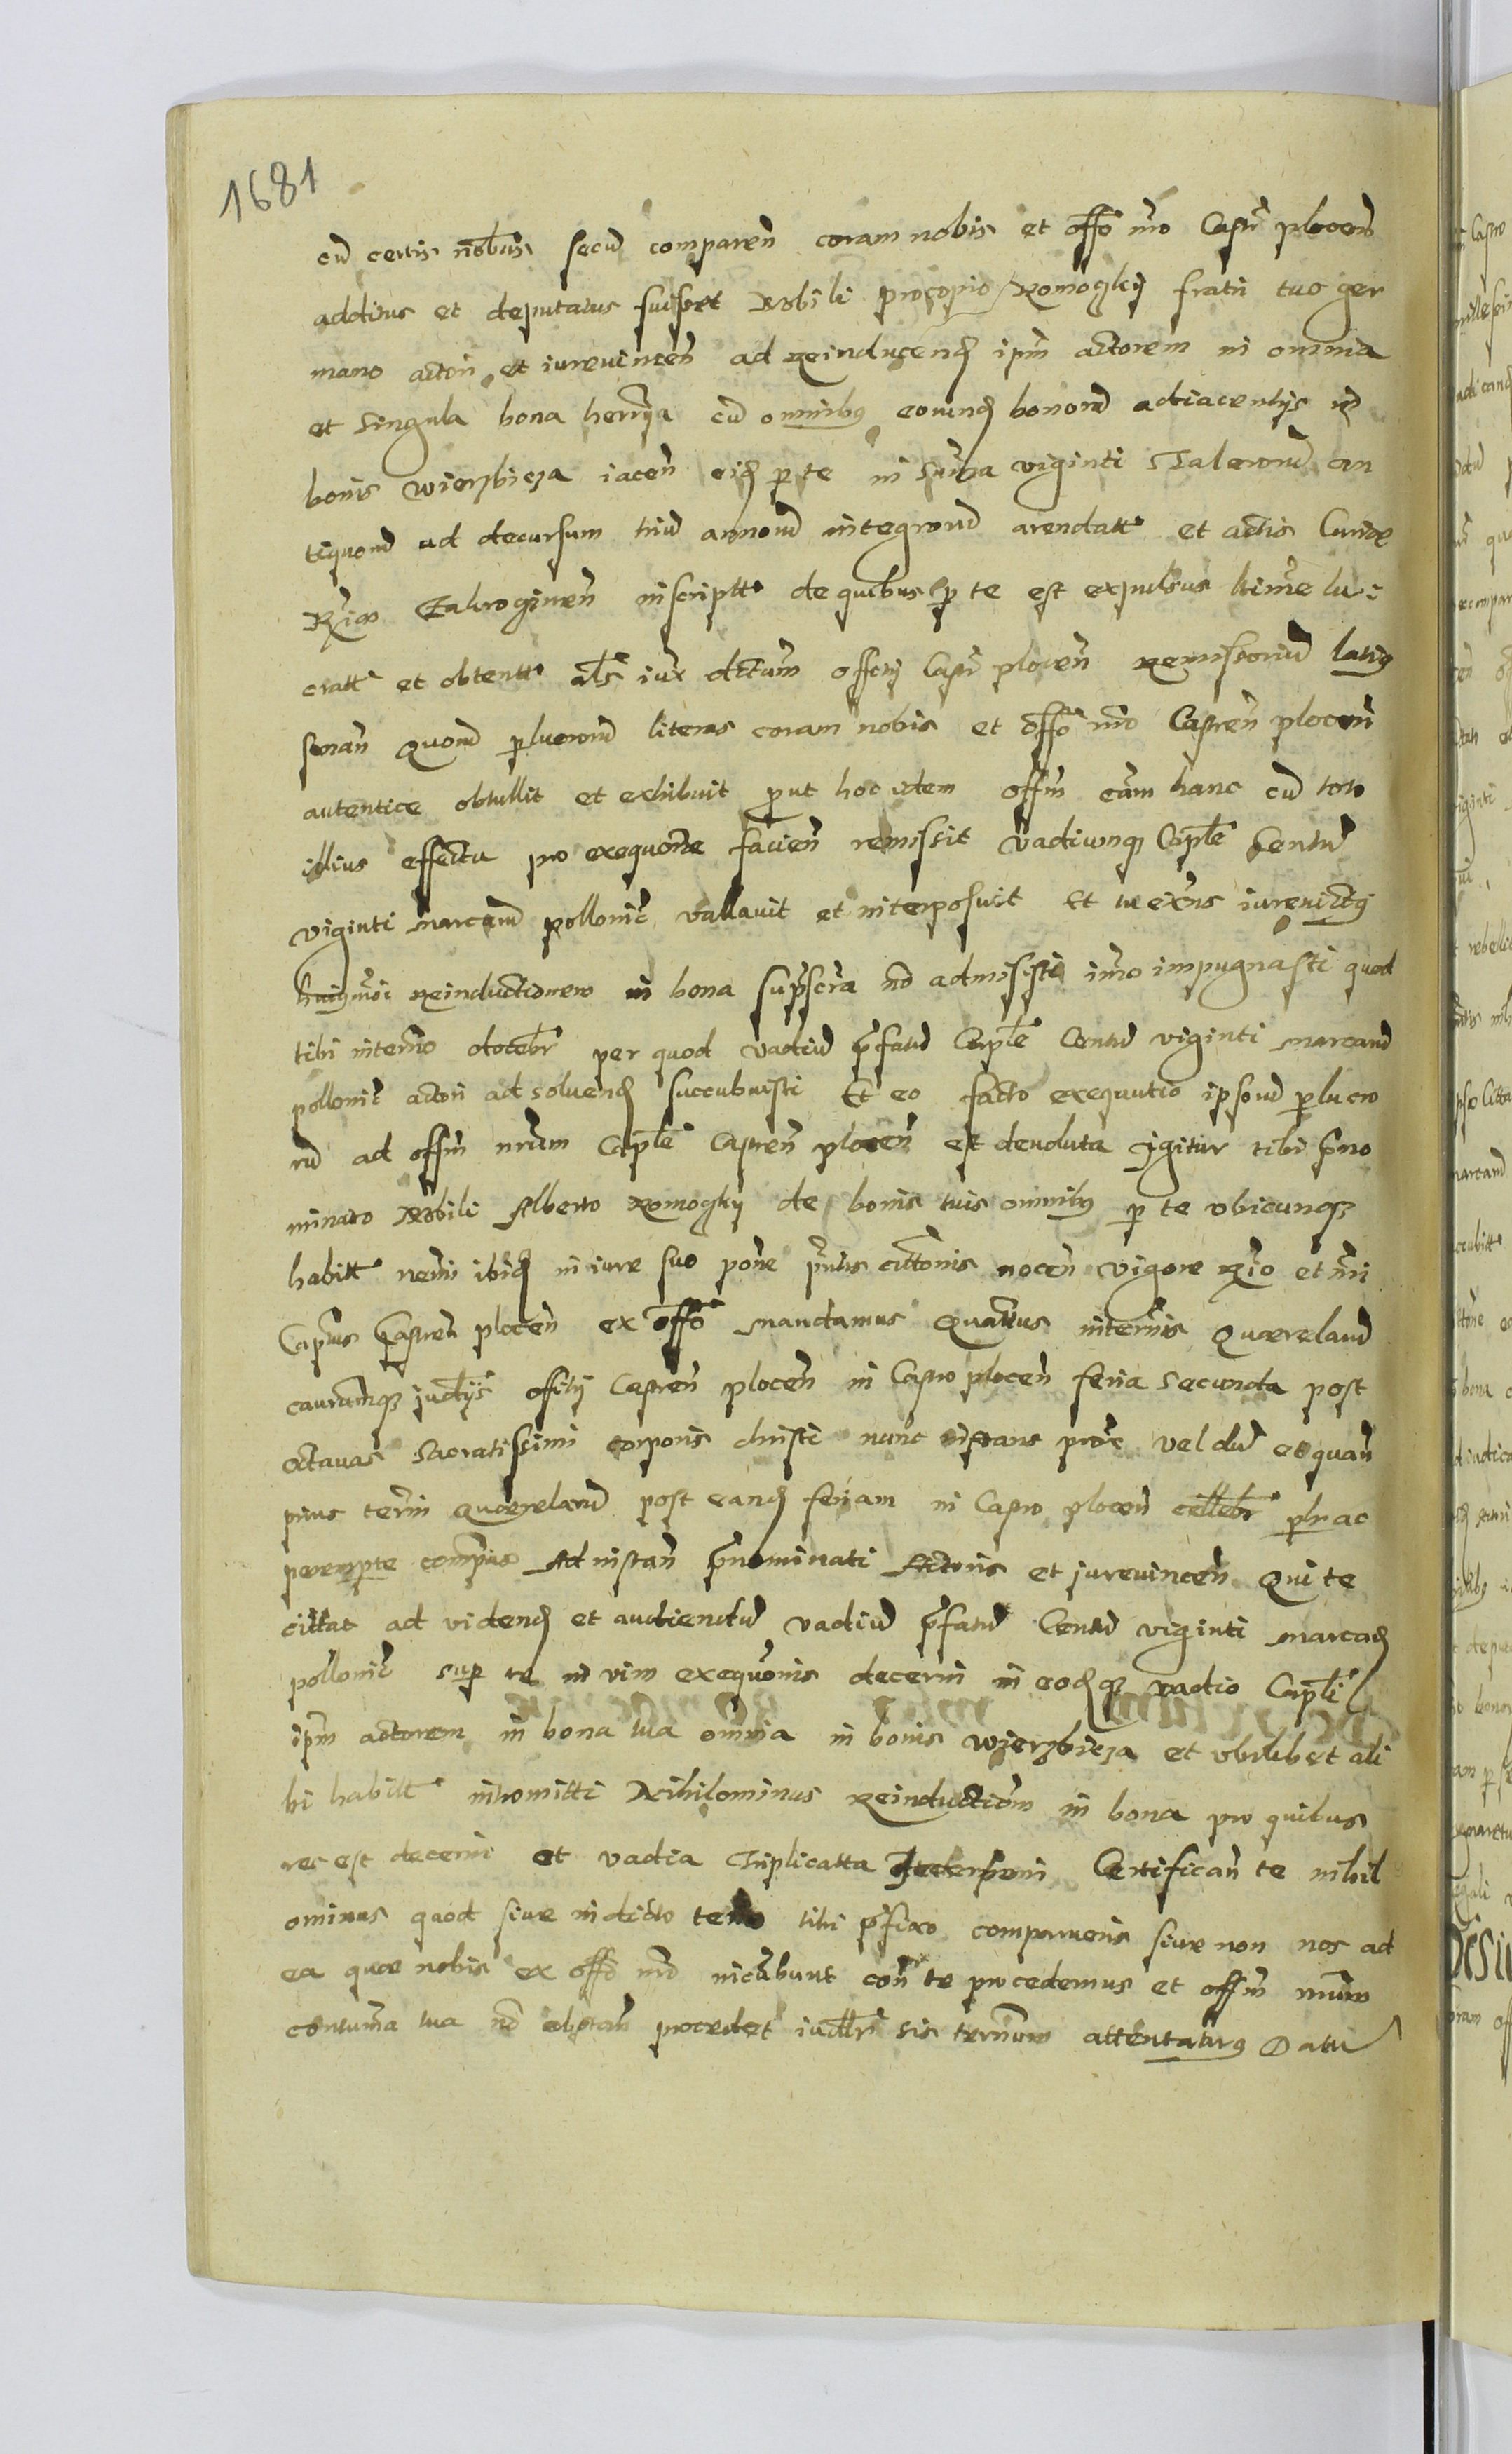 1681
cū certis nobūs secū comparen̄ coram nobis et offō nrō Castrī plocen̄
additus et deputatus fuisset Nobili procopio Romoczky fratri tuo ger
mano actori et iurevincen̄ ad Reinducend ipm̄ actorem in omnia
et singula bona herrīa cū omnibus eorund bonorū adiacentijs in
bonis wierzbicza iacen̄ eid per te in suma viginti Talerorū an
tiquorū ad decursum triū annorū integrorū arendatt et actis Curiae
Rgiae inscriptt de quibus per te est expulsus ltime lu i
cratt et obtentt als iux dctum officij Castrī plocen̄ remissoriū latius
sonan̄ quorū perlucrorū literas coram nobis et offō nrō Castren̄ plocen̄
autentice obtullit et exhibuit prout hoc idem offm̄ eam hanc cū toto
illius effectu pro exequōne facien̄ remissit vadiumq Caple Centū
viginti marcarū pollonic vallavit et interposuit Et tu exns iurevictus
huiusmoi reinductionem in bona suprascra nō admisisti imo impugnasti quod
tibi intermo docebr per quod vadiū prfatū Caple Centū viginti marcarū
pollonic actori ad solvend succubuisti Et eo facto exequutio ipsorū perlucro
rū ad offm̄ nrum Caple Castren̄ plocen̄ est devoluta Igitur tibi prno
minato Nobili Alberto Romoczky de bonis tuis omnibus per te vbicunq
habitt nemi ibid in iure suo pone prntis citttonis nocen̄ vigore Rgio et nri
Captus Castren̄ plocen̄ ex offō mandamus Quattus intermis Quaerelarū
causarumq judtijs officij Castren̄ plocen̄ in Castro plocen̄ feria Secunda post
octavas Sacratissimi Corporis christi nunc instans proc vel dū et quan̄
prius termi quaerelarū post eand feriam in Castro plocen̄ cellebr plr ac
peremptte compeas Ad instan̄ prnominati Actoris et jurevincen̄ Qui te
cittat ad vidend et audiendū vadiū prfatū Centū viginti marcarū
pollonic super te in vim exequōnis decerni in eodq vadio Capli
ipm̄ actorem in bona tua omnia in bonis wierzbicza et vbilibet ali
bi habitt intromitti Nihilominus Reinductiom in bona pro quibus
res est decerni et vadia Triplicatta Interponi Certifican̄ te nihil
ominus quod sive in dicto termo tibi prfixo comparueris sive non nos ad
ea quae nobis ex offō nrō incūbunt con̄ te procedemus et offm̄ nrum
contuma tua nō obstan̄ procedet iudlr sis terminum attentaturus Datū